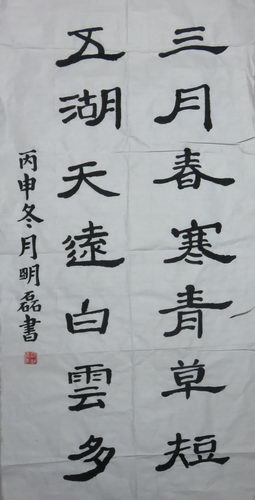 三月春寒青草短
五湖天遠白雲多
丙申冬月明磊書